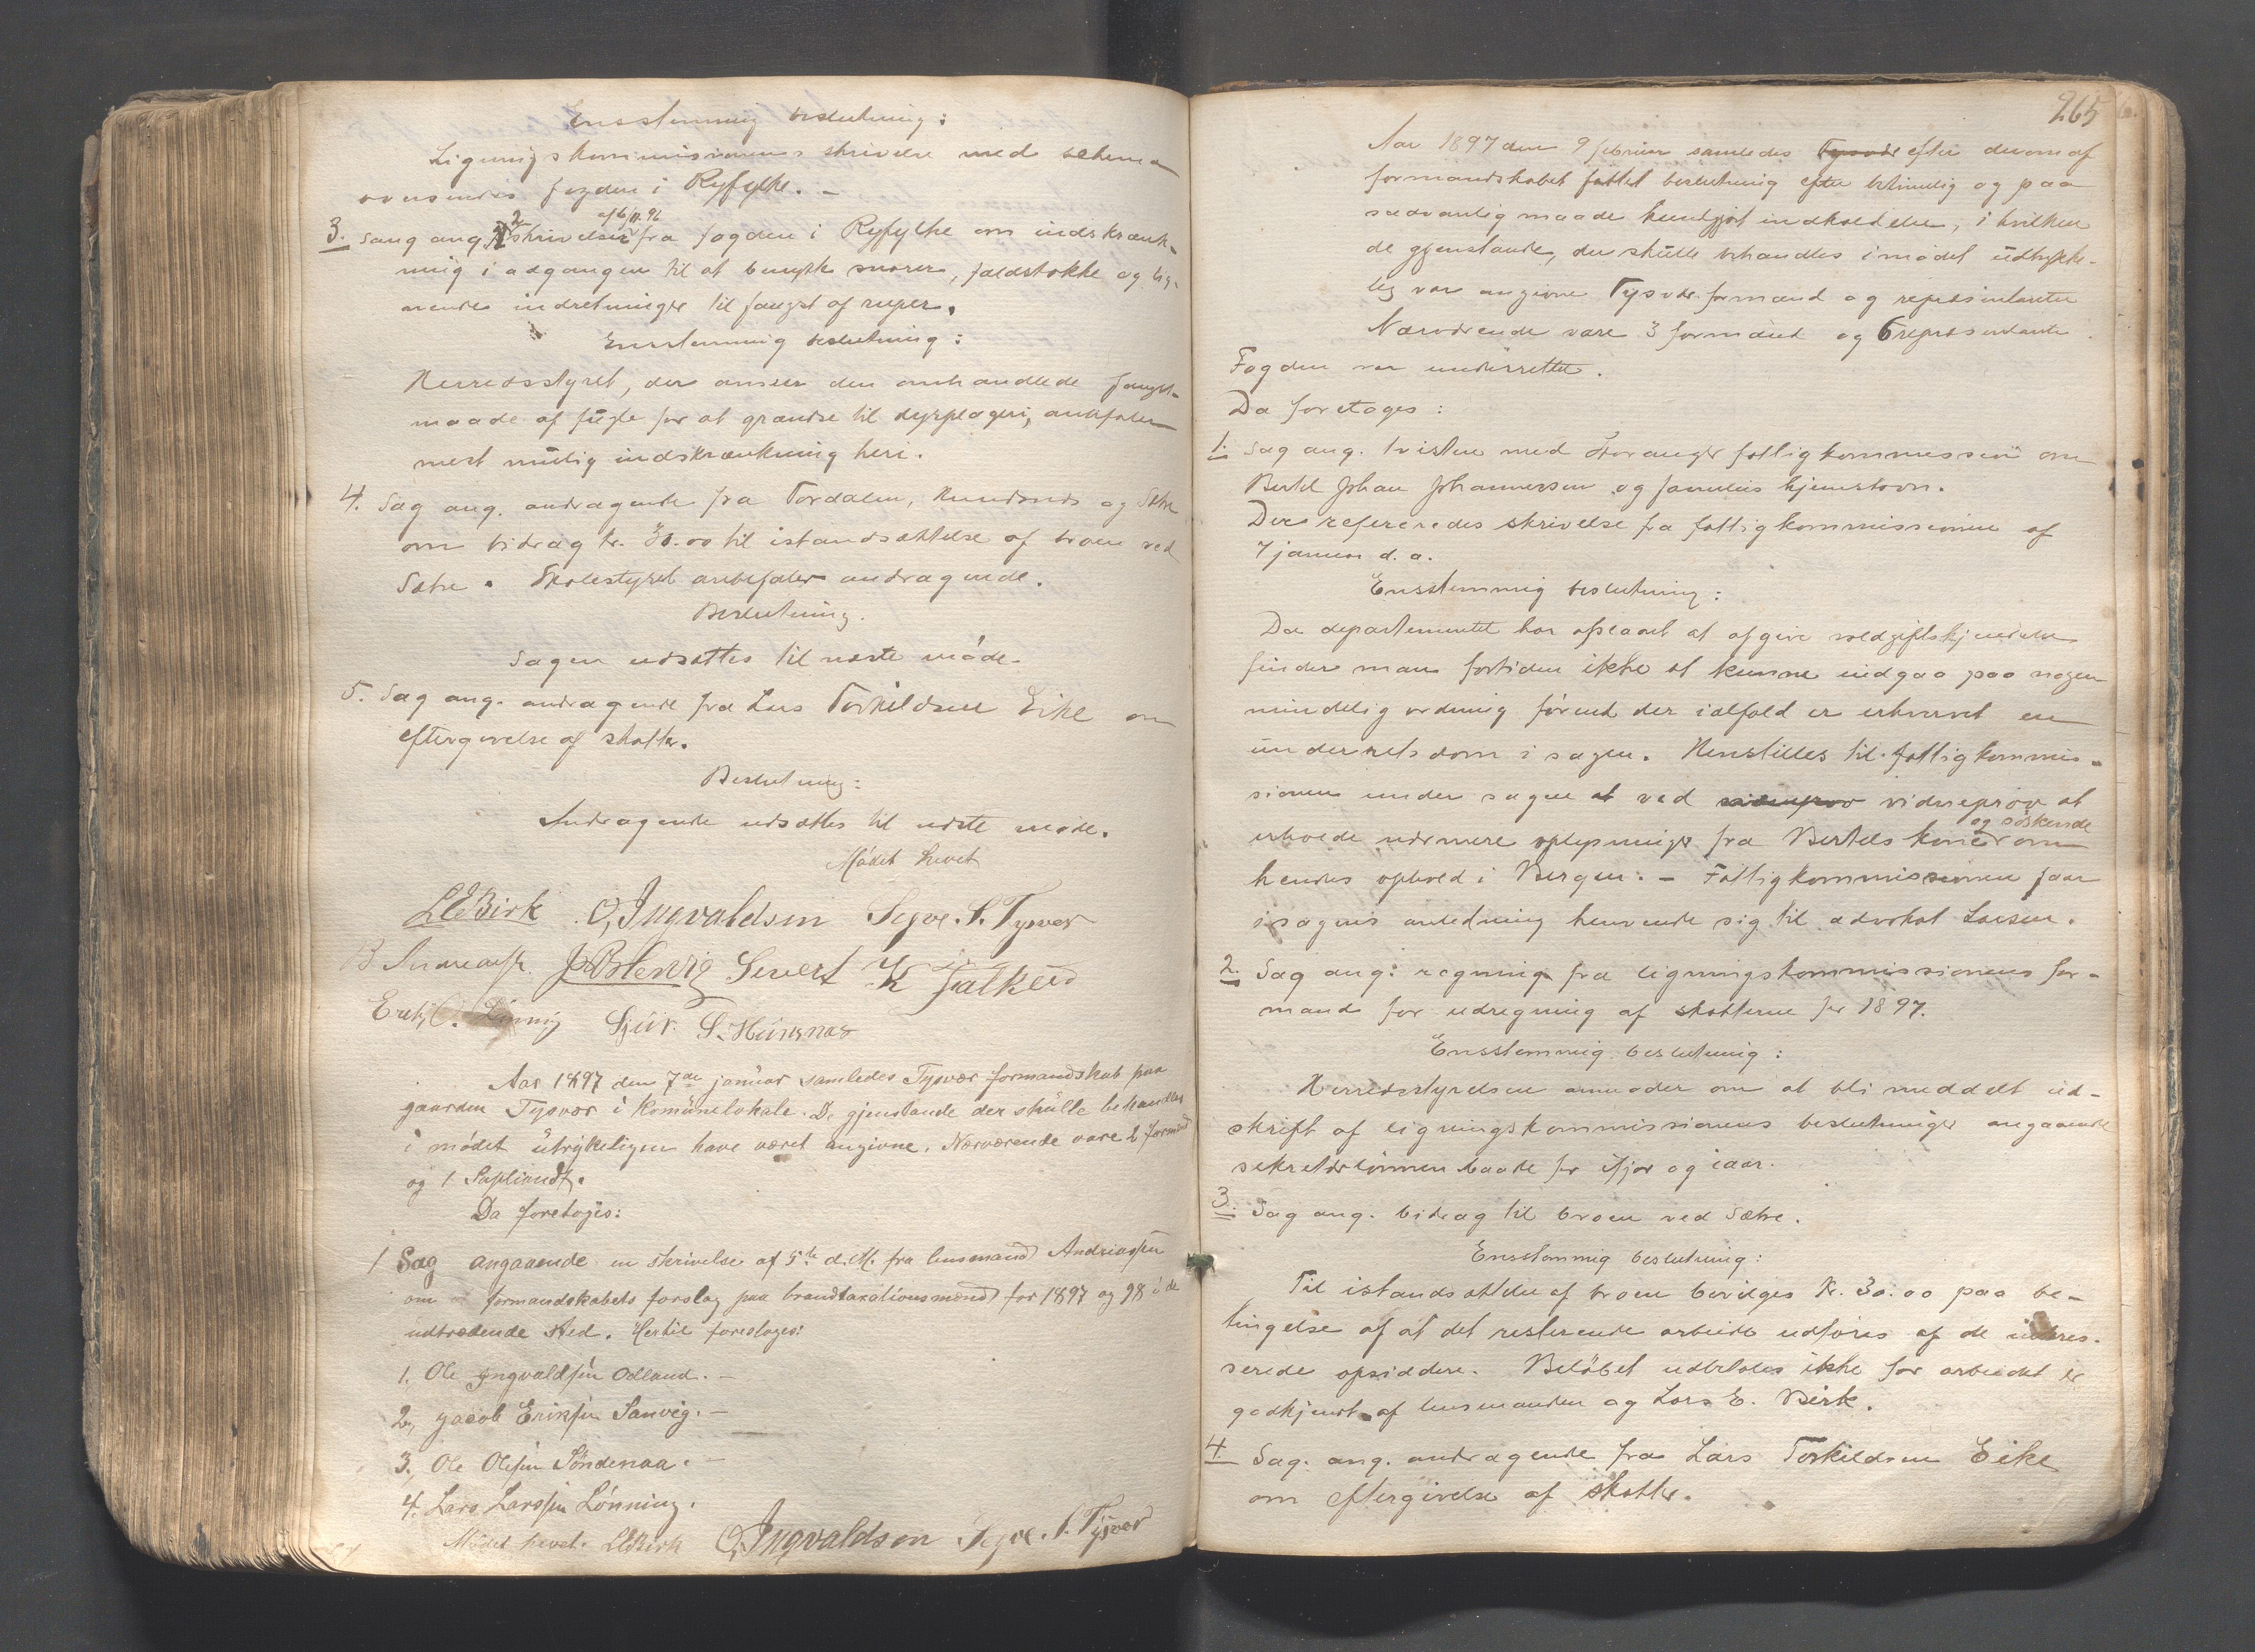 Ensstemmig beslutning:
Ligningskommissionens skrivelse med schema
oversendes fogden i Ryfylke. –
3. Sag ang. 2 skrivelser af 6/11.96 fra fogden i Ryfylke om indskrænk-
ning i adgangen til at benytte snarer, faldstokke og lig-
nende indretninger til fangst af ryper.
Ensstemmig beslutning:
Herredsstyret, der anser den omhandlede fangst-
maade af fugle for at grændse til dyrplageri, anbefaler
mest mulig indskrænkning heri.
4. Sag ang. andragende fra Tordalen, og Sætre
om bidrag kr. 30.00 til istandsættelse af broen ved
Sætre. Skolestyret anbefaler andragende.
Beslutning.
Sagen udsættes til næste møde.
5. Sag ang. andragende fra Lars Torkildsen Eike om
eftergivelse af skatter.
Beslutning:
Andragende udsættes til næste møde.
Mødet hævet
LEBirk O, Ingvaldsen Segve. S. Tysvær
B Andreasen. Sievert K Falkeid
Erik C. Lønnig Sjur S. Hüusnæs
Aar 1897 den 7de januar samledes Tysvær formandskab paa
gaarden Tysvær i Komünelokale. De gjenstande der skülle behandles
i mødet ütrykeligen have været angivne. Nærværende vare 2 formænd
og 1 Supliandt.
Da foretoges:
1 Sag angaaende en skrivelse af 5te d.M. fra lensmand Andreassen
om formandskabets forslag paa brandtaxationsmænd for 1897 og 98 i de
udtrædende sted. Hertil foresloges:
1. Ole Yngvaldsen Odland. –
2, Jacob Eriksen Sanvig. –
3. Ole Olesen Söndenaa. –
4. Lars Larssen Lönning.
Mødet hævet. LEBirk O, Ingvaldsen Segve. S. Tysvær
265
Aar 1897 den 9 februar samledes Tysvær efter derom af
formandskabet fattet beslutning efter betimelig og paa
sædvanlig maade kundgjort indkaldelse, i hvilken
de gjenstande, der skulle behandles i mødet üdtrykke-
lig var angivne Tysvær formænd og repræsentanter
Nærværende vare 3 formænd og 6 repræsentanter.
Fogden var underrettet.
Da foretoges:
1. Sag ang. tvisten med Stavanger fattigkommission om
Bertel Johan Johannessen og families hjemstavn.
Der refereredes skrivelse fra fattigkommissionen af
7 januar d. a.
Ensstemmig beslutning:
Da departementet har afslaaet at afgive voldgiftskjendelse
finder man fortiden ikke at kunne indgaa paa nogen
mindelig ordning førend der ialfald er erhvervet en
underretsdom i sagen. Henstilles til fattigkommis-
sionen under sagen at ved vidneprov at
erholde nærmere oplysninger fra Bertels kone og søskende om
hendes ophold i Bergen. – Fattigkommissionen faar
i sagens anledning henvende sig til advokat Larsen.
2. Sag ang: regning fra ligningskommissionens for-
mand for udregning af skatterne for 1897.
Ensstemmig beslutning:
Herredsstyrelsen anmoder om at bli meddelt ud-
skrift af ligningskommissionens beslutninger angaaende
sekretærlønnen baade for ifjor og iaar.
3. Sag ang. bidrag til broen ved Sætre.
Ensstemmig beslutning:
Til istandsættelse af broen bevilges Kr. 30.00 paa be-
tingelse af at det resterende arbeide udføres af de intres-
serede opsiddere. Beløbet udbetales ikke før arbeidet er
godkjendt af lensmanden og Lars E. Birk.
4 Sag. ang. andragende fra Lars Torkildsen Eike
om eftergivelse af skatter.